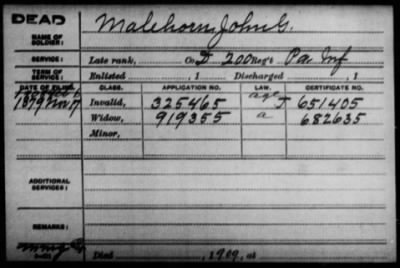 DEAD
NAME OF SOLDIER: Malehorn, John G.
SERVICE: Late rank, Co. D, 200 Reg't Pa Inf
TERM OF SERVICE: Enlisted , 1 Discharged , 1
DATE OF FILING. CLASS. APPLICATION NO. LAW. CERTIFICATE NO.
1879 Nov 7 Invalid, 325465 age J 651405
Widow, 919355 a 682635
Minor,
ADDITIONAL SERVICES:
REMARKS:
Died , 1909, at